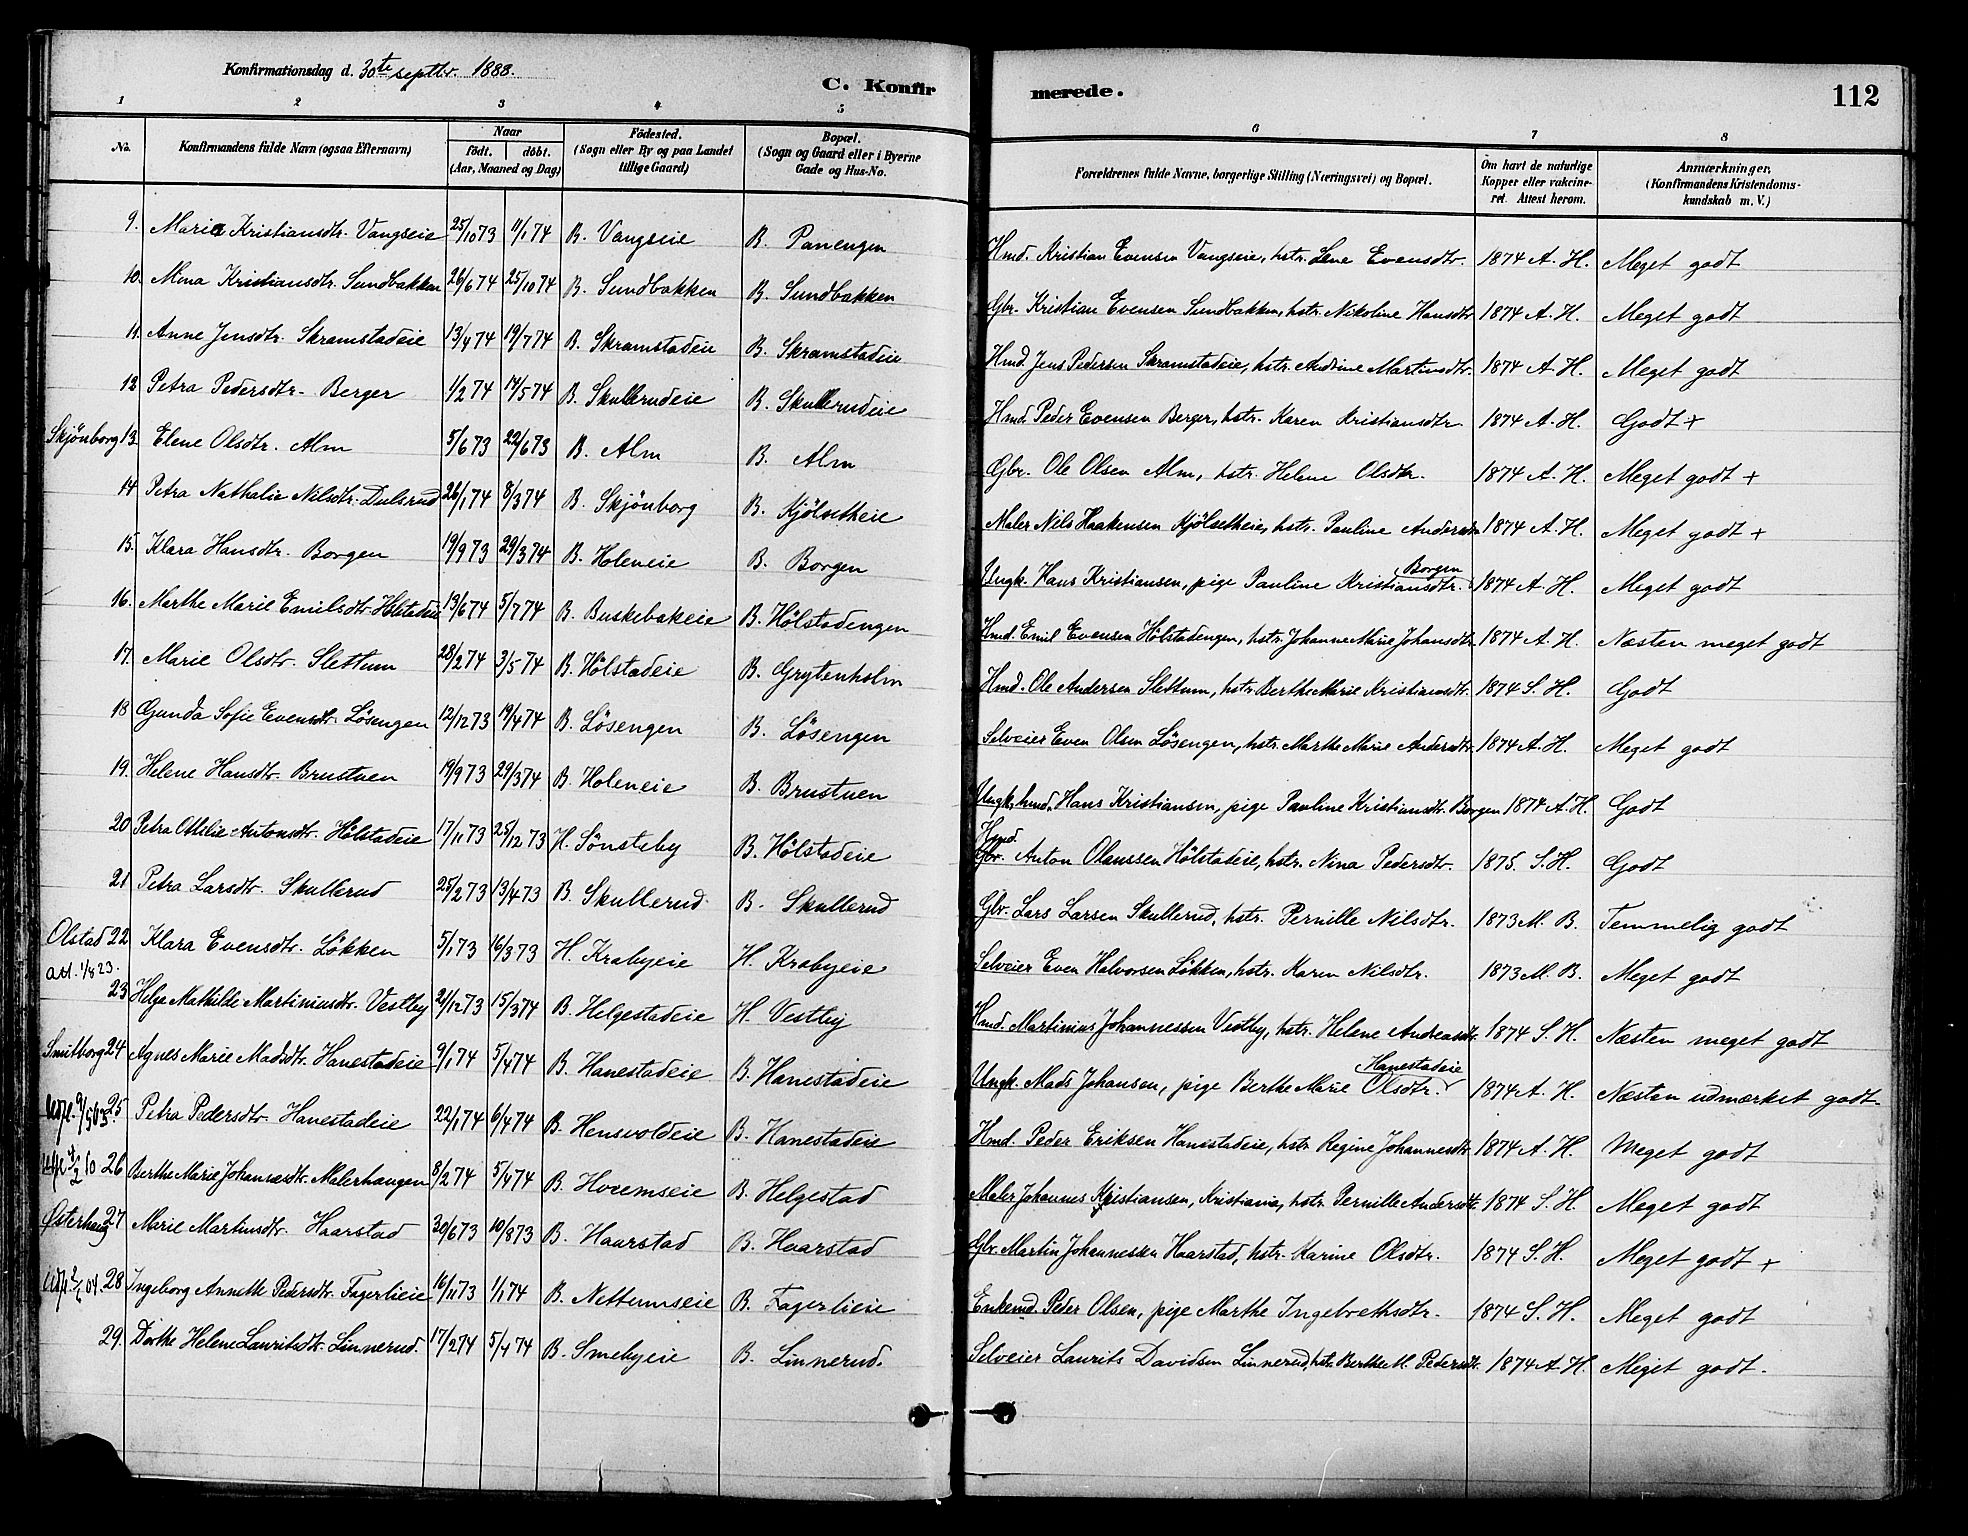 Konfirmationsdag d. 30te septbr. 1888.
C. Konfirmerede.
112
1 2 3 4 5 6 7 8
No. Konfirmandens fulde Navn (ogsaa Efternavn) Naar födt. döbt. (Aar, Maaned og Dag) Födested. (Sogn eller By og paa Landet tillige Gaard) Bopæl. (Sogn og Gaard eller i Byerne Gade og Hus-No. Forældrenes fulde Navne, borgerlige Stilling (Næringsvei) og Bopæl. Om havt de naturlige Kopper eller vakcineret. Attest herom. Anmærkninger. (Konfirmandens Kristendomskundskab m. V.)
9. Maria Kristiansdtr. Vangseie 25/10 73 11/1 74 B. Vangseie B. Panengen Hmd. Kristian Evensen Vangseie, hstr. Lene Evensdtr. 1874 A. H. Meget godt
10. Mina Kristiansdtr. Sundbakken 26/6 74 25/10 74 B. Sundbakken B. Sundbakken Gbr. Kristian Evensen Sundbakken, hstr. Nikoline Hansdtr 1874 A. H. Meget godt
11. Anne Jensdtr. Skramstadeie 13/4 74 19/7 74 B. Skramstadeie B. Skramstadeie Hmd. Jens Pedersen Skramstadeie, hstr. Andrine Martinsdtr. 1874 A. H. Meget godt
12 Petra Pedersdtr. Berger 1/2 74 14/5 74 B. Skullerudeie B. Skullerudeie Hmd. Peder Evensen Berger, hstr. Karen Kristiansdtr 1874 A. H. Godt +
Skjönborg 13. Elene Olsdtr. Alm 5/6 73 22/6 73 B. Alm B. Alm Gbr. Ole Olsen Alm, hstr. Helene Olsdtr. 1874 A. H. Meget godt +
14 Petra Nathalie Nilsdtr. Dulsrud 26/1 74 8/3 74 B. Skjönborg B. Kjölsetheie Maler Nils Haakensen Kjölsetheie, hstr. Pauline Andersdtr 1874 A. H. Meget godt +
15. Klara Hansdtr. Borgen 19/9 73 29/3 74 B. Holeneie B. Borgen Ungk. Hans Kristiansen, pige Pauline Kristiansdtr. Borgen 1874 A. H. Meget godt
16. Marthe Marie Emilsdtr Hölstadeie 13/6 74 5/7 74 B. Buskebakeie B. Hölstadengen Hmd. Emil Evensen Hölstadengen, hstr. Johanne Marie Johansdtr 1874 A. H. Næsten meget godt
17. Marie Olsdtr. Slettum 28/2 74 3/5 74 B. Hölstadeie B. Grytenholm Hmd. Ole Andersen Slettum, hstr. Berthe Marie Kristiansdtr. 1874 S. H. Godt
18 Gunda Sofie Evensdtr. Lösengen 12/12 73 19/4 74 B. Lösengen B. Lösengen Selveier Even Olsen Lösengen, hstr. Marthe Marie Andersdtr. 1874 A. H. Meget godt
19. Helene Hansdtr. Brustuen 19/9 73 29/3 74 B. Holeneie B. Brustuen Ungk. hmd. Hans Kristiansen, pige Pauline Kristiansdtr. Borgen 1874 A. H. Godt
20 Petra Otilie Antonsdtr. Hölstadeie 17/11 73 25/12 73 H. Sönsteby B. Hölstadeie Hmd. Gbr. Anton Olaussen Hölstadeie, hstr. Nina Pedersdtr. 1875. S. H. Godt
21 Petra Larsdtr. Skullerud 25/2 73 13/4 73 B. Skullerud B. Skullerud Gbr. Lars Larsen Skullerud, hstr. Pernille Nilsdtr. 1873 M. B. Temmelig godt
Olstad 22 Klara Evensdtr. Lökken 5/1 73 16/3 73 H. Krabyeie H. Krabyeie Selveier Even Halvorsen Lökken, hstr. Karen Nilsdtr. 1873 M. B. Meget godt
23 Helga Mathilde Martiniusdtr. Vestby 21/12 73 15/3 74 B. Helgestadeie H. Vestby Hmd. Martinius Johannessen Vestby, hstr. Helene Andreasdtr. 1874 S. H. Næsten meget godt
Smitborg 24 Agnes Marie Madsdtr. Hanestadeie 9/1 74 5/4 74 B. Hanestadeie B. Hanestadeie Ungk. Mads Johansen, pige Berthe Marie Olsdtr. Hanestadeie 1874 A. H. Næsten udmærket godt.
25 Petra Pedersdtr. Hanestadeie 22/1 74 6/4 74 B. Hensvoldeie B. Hanestadeie Hmd. Peder Eriksen Hanestadeie, hstr. Regine Johannesdtr 1874 A. H. Meget godt
26 Berthe Marie Johannesdtr. Malerhaugen 8/2 74 5/4 74 B. Horemseie B. Helgestad Maler Johannes Kristiansen, Kristiania, hstr. Pernille Andersdtr. 1874 S. H. Meget godt
Østerhaug 27 Marie Martinsdtr. Haarstad 30/6 73 10/8 73 B. Haarstad B. Haarstad Gbr. Martin Johannessen Haarstad, hstr. Karine Olsdtr. 1874 S. H. Meget godt +
28 Ingeborg Annette Pedersdtr. Fagerlieie 16/11 73 1/1 74 B. Nettumseie B. Fagerlieie Enkemd. Peder Olsen, pige Marthe Ingebrethsdtr. 1874 S. H. Meget godt
29. Dorthe Helene Lauritsdtr. Linnerud. 17/2 74 5/4 74 B. Smebyeie B. Linnerud. Selveier Laurits Davidsen Linnerud, hstr. Berthe M. Pedersdtr. 1874 A. H. Meget godt.